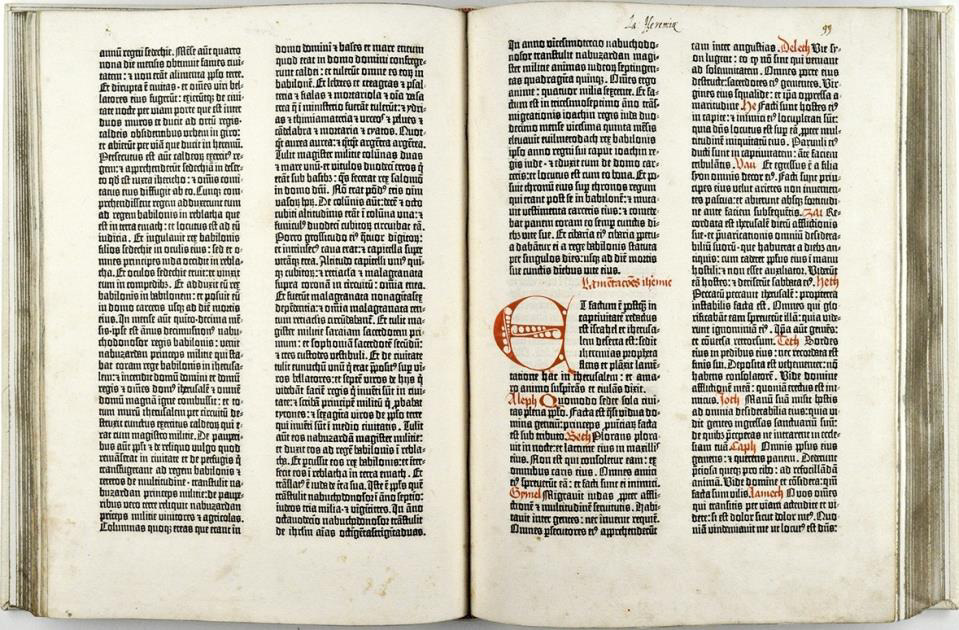 La Jeremia
99
annū regni sedechie. Mēse aūt quarto
nona die mensis obtinuit fames civi-
tatem: ⁊ non erāt alimenta ipso terre.
Et dirupta ē civitas et omēs viri bel-
latores eius fugerūt: exierūtqȝ de civi-
tate nocte per viam porte que est inter
duos muros et ducit ad ortū regis:
caldeis obsidentibus urbem in giro:
et abierūt per viā que ducit in heremū.
Persecutus est aūt caldeoȝ exercitꝰ re-
gem: ⁊ apprehenderūt sedechiā in deser-
to qd̄ est iuxta ihericho: ⁊ omīs comi-
tatus eius diffugit ab eo. Cumqȝ com-
prehendissent regem adduxerunt eum
ad regem babilonis in reblatha que
est in terra emath: et locutus est ad eū
iudicia. Et iugulavit rex babilonis
filios sedechie in oculis eius: sed et o-
mnes principes iuda occidit in rebla-
tha. Et oculos sedechie eruit: et vinxit
eum in compedibus. Et adduxit eū rex
babilonis in babilonem: et posuit eū
in domo carceris usqȝ ad diē mortis
eius. In mense aūt quinto decima mē-
sis ipse est annus decimusnonꝰ nabu-
chodonosor regis babilonis: venit
nabuzardan princeps militie qui sta-
bat coram rege babilonis in iherusa-
lem: ⁊ incendit domū domini et domū
regis ⁊ omēs domꝰ iherusalē: ⁊ omnē
domum magnā igne combussit: et to-
tum murū iherusalem per circuitū de-
struxit cunctus exercitus caldeoȝ qui e-
rat cum magistro militie. De pauperi-
bus aūt ppli ⁊ de reliquo vulgo quod
remāserat in civitate et de perfugis qi
transfugerant ad regem babilonis ⁊
ceteros de multitudine transtulit na-
buzardan princeps militie: de paupe-
ribus vero terre reliquit nabuzardan
princeps militie vinitores ⁊ agricolas.
Columnas quoqȝ ereas que erant in
domo domini ⁊ bases et mare eneum
quod erat in domo domini confrege-
runt caldei: et tulerūt omne es eoȝ in
babilonē. Et lebetes et creagras ⁊ psal-
teria ⁊ fialas ⁊ mortariola ⁊ oīa vasa
erea q̄ ī ministerio fuerāt tulerūt: ⁊ ydri-
as ⁊ thimiamateria ⁊ urceos ⁊ pelves ⁊
cādelabra ⁊ mortaria ⁊ cyatos. Quot-
qt̄ aurea aurea: ⁊ qtqt̄ argētea argētea.
Tulit magister militie colūnas duas
⁊ mare unū et vitulos duodeci ereos q̄
erāt sub basibȝ: qs fecerat rex salomō
in domo dn̄i. Nō erat pōdꝰ eris oīm
vasoȝ hoȝ. De colūnis aūt: decē ⁊ octo
cubiti altitudinis erāt ī colūna una: ⁊
funiculꝰ duodeci cubitoȝ circuibat eā.
Porro grossitudo eiꝰ q̄tuor digitoȝ:
et intrinsecꝰ cava erat: ⁊ capitella super
utrāqȝ erea. Altitudo capitelli unīꝰ quī-
qȝ cubitoȝ: ⁊ retiacula ⁊ malagranata
supra coronā in circuitu: omīa erea.
Et fuerūt malagranata nonagītasex
depēdētia: ⁊ omīa malagranata cen-
tum retiaclis circūdabāt. Et tulit ma-
gister militie saraiam sacerdotem pri-
mum: et sophoniā sacerdotē secūdū:
⁊ tres custodes vestibuli. Et de civitate
tulit eunuchū unū q̄ erat ppositꝰ sup vi-
ros bellatores: et septē viros de hijs q̄
videbāt faciē regis q̄ inventi sūt in civi-
tate: ⁊ scribā principē militū q̄ probabat
tyrones: ⁊ sexagīta viros de pplo terre
qui inventi sūt ī medio civitatis. Tulit
aūt eos nabuzardā magister militie:
⁊ duxit eos ad regē babilonis ī rebla-
tha. Et pcussit eos rex babilonis: et inter-
fecit eos ī reblatha in terra emath. Et
trāslatꝰ ē iuda de terra sua. Iste ē ppls quē
transtulit nabuchodonosor: ī āno septio:
iudeos tria milia ⁊ vigītitres. In āno
octavodecio nabuchodonosor trāstulit
de ihrlm aīas octīgētastrigītaduas.
In anno vicesimotercio nabuchodo-
nosor transtulit nabuzardan magi-
ster militie animas iudeoȝ septingen-
tas quadragita quinqȝ. Omēs ergo
anime: quatuor milia sexcente. Et fa-
ctum est in tricesimoseptimo āno trās-
migrationis ioachin regis iuda duo-
decimo mense vicesima quinta mēsis
elevavit evilmerodach rex babilonis
ipso anno regni sui caput ioachin re-
gis iude ⁊ eduxit eum de domo car-
ceris: et locutus est cum eo bona. Et po-
suit thronū eius sup thronos regum
qui erant post se in babilonē: ⁊ muta-
vit vestimenta carceris eius: ⁊ comede-
bat panem coram eo semp cunctis di-
ebȝ vite sue. Et cibaria eiꝰ cibaria ppetu-
a dabantur ei a rege babilonis statuta
per singulos dies: usqȝ ad diē mortis
sue cunctis diebus vite eius.
Lamētacōes iheremie
Et factum ē postqȝ in
captivitatē redactus
est israhel et iherusa-
lem deserta est: sedit
iheremias propheta
flens et plāxit lamē-
tatione hac in iherusalem: et ama-
ro animo suspirās et eiulās dixit.
Aleph Quomodo sedet sola civi-
tas plena pplo. Facta est q̄si vidua do-
mina gentiū: princeps pvinciaȝ facta
est sub tributo. Beth Plorans plora-
vit in nocte: et lacrime eius in maxillis
eius. Non est qui consoletur eam: ex
omnibus caris eius. Omnes amici
eiꝰ spreverūt eā: et facti sunt ei inimici.
Gymel Migravit iudas ppter affli-
ctionē ⁊ multitudinē servitutis. Habi-
tavit inter gentes: nec invenit requiē.
Omnes psecutores eiꝰ apprehenderūt
eam inter angustias. Deleth Vie sy-
on lugent: eo qȝ nō sint qui veniant
ad solennitatem. Omnes porte eius
destructe: sacerdotes eiꝰ gementes. Vir-
gines eius squalide: et ipa oppressa a-
maritudine. He Facti sunt hostes eiꝰ
in capite: ⁊ inimici eiꝰ locupletati sūt:
quia dn̄s locutus est sup eā ppter mul-
titudinē iniquitatū eius. Parvuli eiꝰ
ducti sunt in captivitatem: āte faciem
tribulātis. Vau Et egressus ē a filia
syon omnis decor eiꝰ. Facti sunt prin-
cipes eius velut arietes non invenien-
tes pascua: et abierunt absqȝ fortitudi-
ne ante faciem subsequētis. Zai Re-
cordata est iherusalē dierū afflictionis
sue: et pvaricationis omniū desidera-
biliū suorū que habuerat a diebȝ an-
tiquis: cum caderet pplus eius ī manu
hostili: ⁊ non esset auxiliator. Viderūt
eā hostes: ⁊ deriserūt sabbata eiꝰ. Heth
Peccatū peccavit iherusalē: propterea
instabilis facta est. Omnes qui glo-
rificabāt eam spreverūt illā: quia vide-
runt ignominiā eiꝰ. Ipa aūt gemēs:
et conversa retrorsum. Teth Sordes
eius in pedibus eius: nec recordata est
finis sui. Deposita est vehementer: nō
habens consolatorē. Vide domine
afflictionē meā: quoniā erectus est ini-
micus. Joth Manū suā misit hostis
ad omnia desiderabilia eius: quia vi-
dit gentes ingressas sanctuariū suū:
de quibȝ pceperas ne intrarent in eccle-
siam tuā. Caph Omnis pplus eius
gemens: ⁊ querens panem. Dederunt
preciosa queqȝ pro cibo: ad refocillādā
animā. Vide domine et cōsidera: qm̄
facta sum vilis. Lamech O vos omēs
qui transitis per viam: adtendite et vi-
dete: si est dolor sicut dolor meꝰ. Quo-
niā vindemiavit me ut locutꝰ est dn̄s: